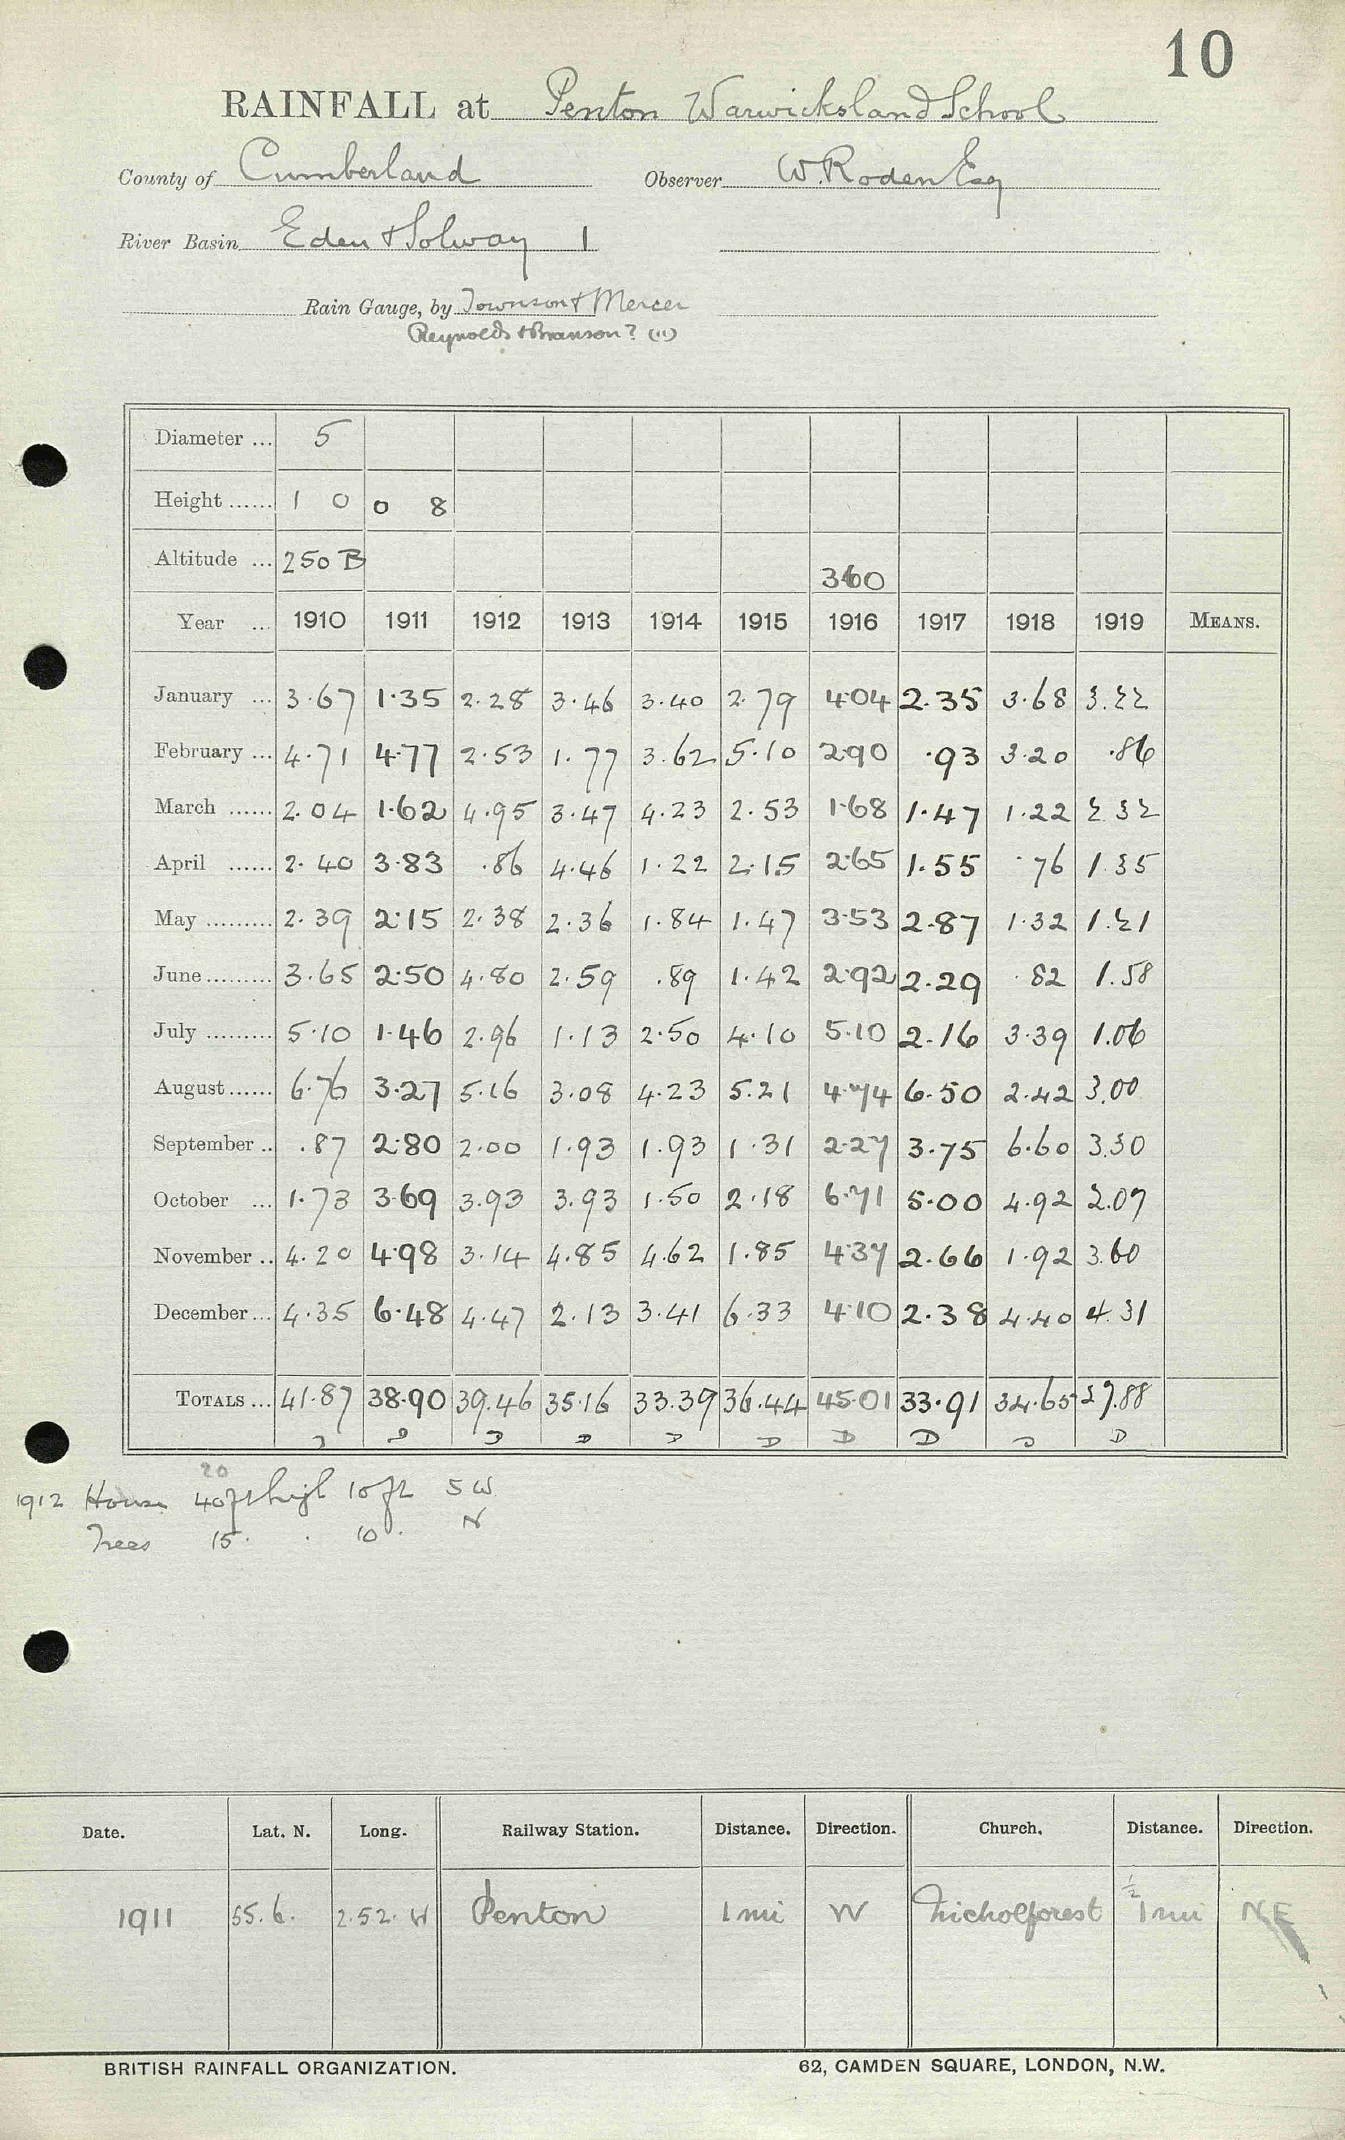 10
RAINFALL at Penton Warwicksland School
County of Cumberland Observer W. Roden Esq
River Basin Eden & Solway 1
Rain Gauge, by Townson & Mercer
Reynolds & Branson? (11)
Diameter ... 5
Height ...... 1 0 0 8
Altitude ... 250 B 360
Year ... 1910 1911 1912 1913 1914 1915 1916 1917 1918 1919 MEANS.
January ... 3.67 1.35 2.28 3.46 3.40 2.79 4.04 2.35 3.68 3.22
February ... 4.71 4.77 2.53 1.77 3.62 5.10 2.90 .93 3.20 .86
March ...... 2.04 1.62 4.95 3.47 4.23 2.53 1.68 1.47 1.22 2.32
April ...... 2.40 3.83 .86 4.46 1.22 2.15 2.65 1.55 .76 1.35
May ......... 2.39 2.15 2.38 2.36 1.84 1.47 3.53 2.87 1.32 1.21
June ......... 3.65 2.50 4.80 2.59 .89 1.42 2.92 2.29 .82 1.58
July ......... 5.10 1.46 2.96 1.13 2.50 4.10 5.10 2.16 3.39 1.06
August ...... 6.76 3.27 5.16 3.08 4.23 5.21 4.74 6.50 2.42 3.00
September .. .87 2.80 2.00 1.93 1.93 1.31 2.27 3.75 6.60 3.30
October ... 1.73 3.69 3.93 3.93 1.50 2.18 6.71 5.00 4.92 2.07
November .. 4.20 4.98 3.14 4.85 4.62 1.85 4.37 2.66 1.92 3.60
December ... 4.35 6.48 4.47 2.13 3.41 6.33 4.10 2.38 4.40 4.31
TOTALS ... 41.87 38.90 39.46 35.16 33.39 36.44 45.01 33.91 34.65 27.88
D D D D D D D D D D
20
1912 House 40 ft high 10 ft SW
Trees 15 . 10 . N
Date. Lat. N. Long. Railway Station. Distance. Direction. Church. Distance. Direction.
1911 55.6. 2.52. W Penton 1 mi W Nicholforest ½ 1 mi NE
BRITISH RAINFALL ORGANIZATION. 62, CAMDEN SQUARE, LONDON, N.W.